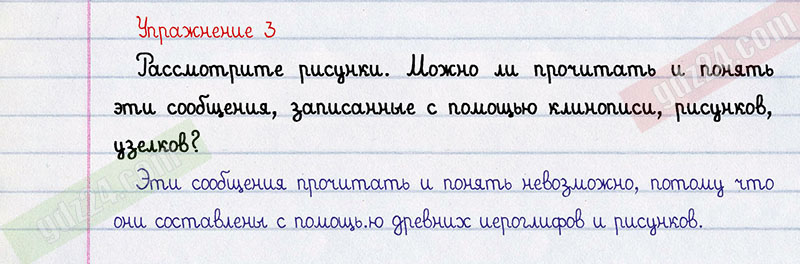 Упражнение 3
Рассмотрите рисунки. Можно ли прочитать и понять
эти сообщения, записанные с помощью клинописи, рисунков,
узелков?
Эти сообщения прочитать и понять невозможно, потому что
они составлены с помощь.ю древних иероглифов и рисунков.
gdz24.com
gdz24.com